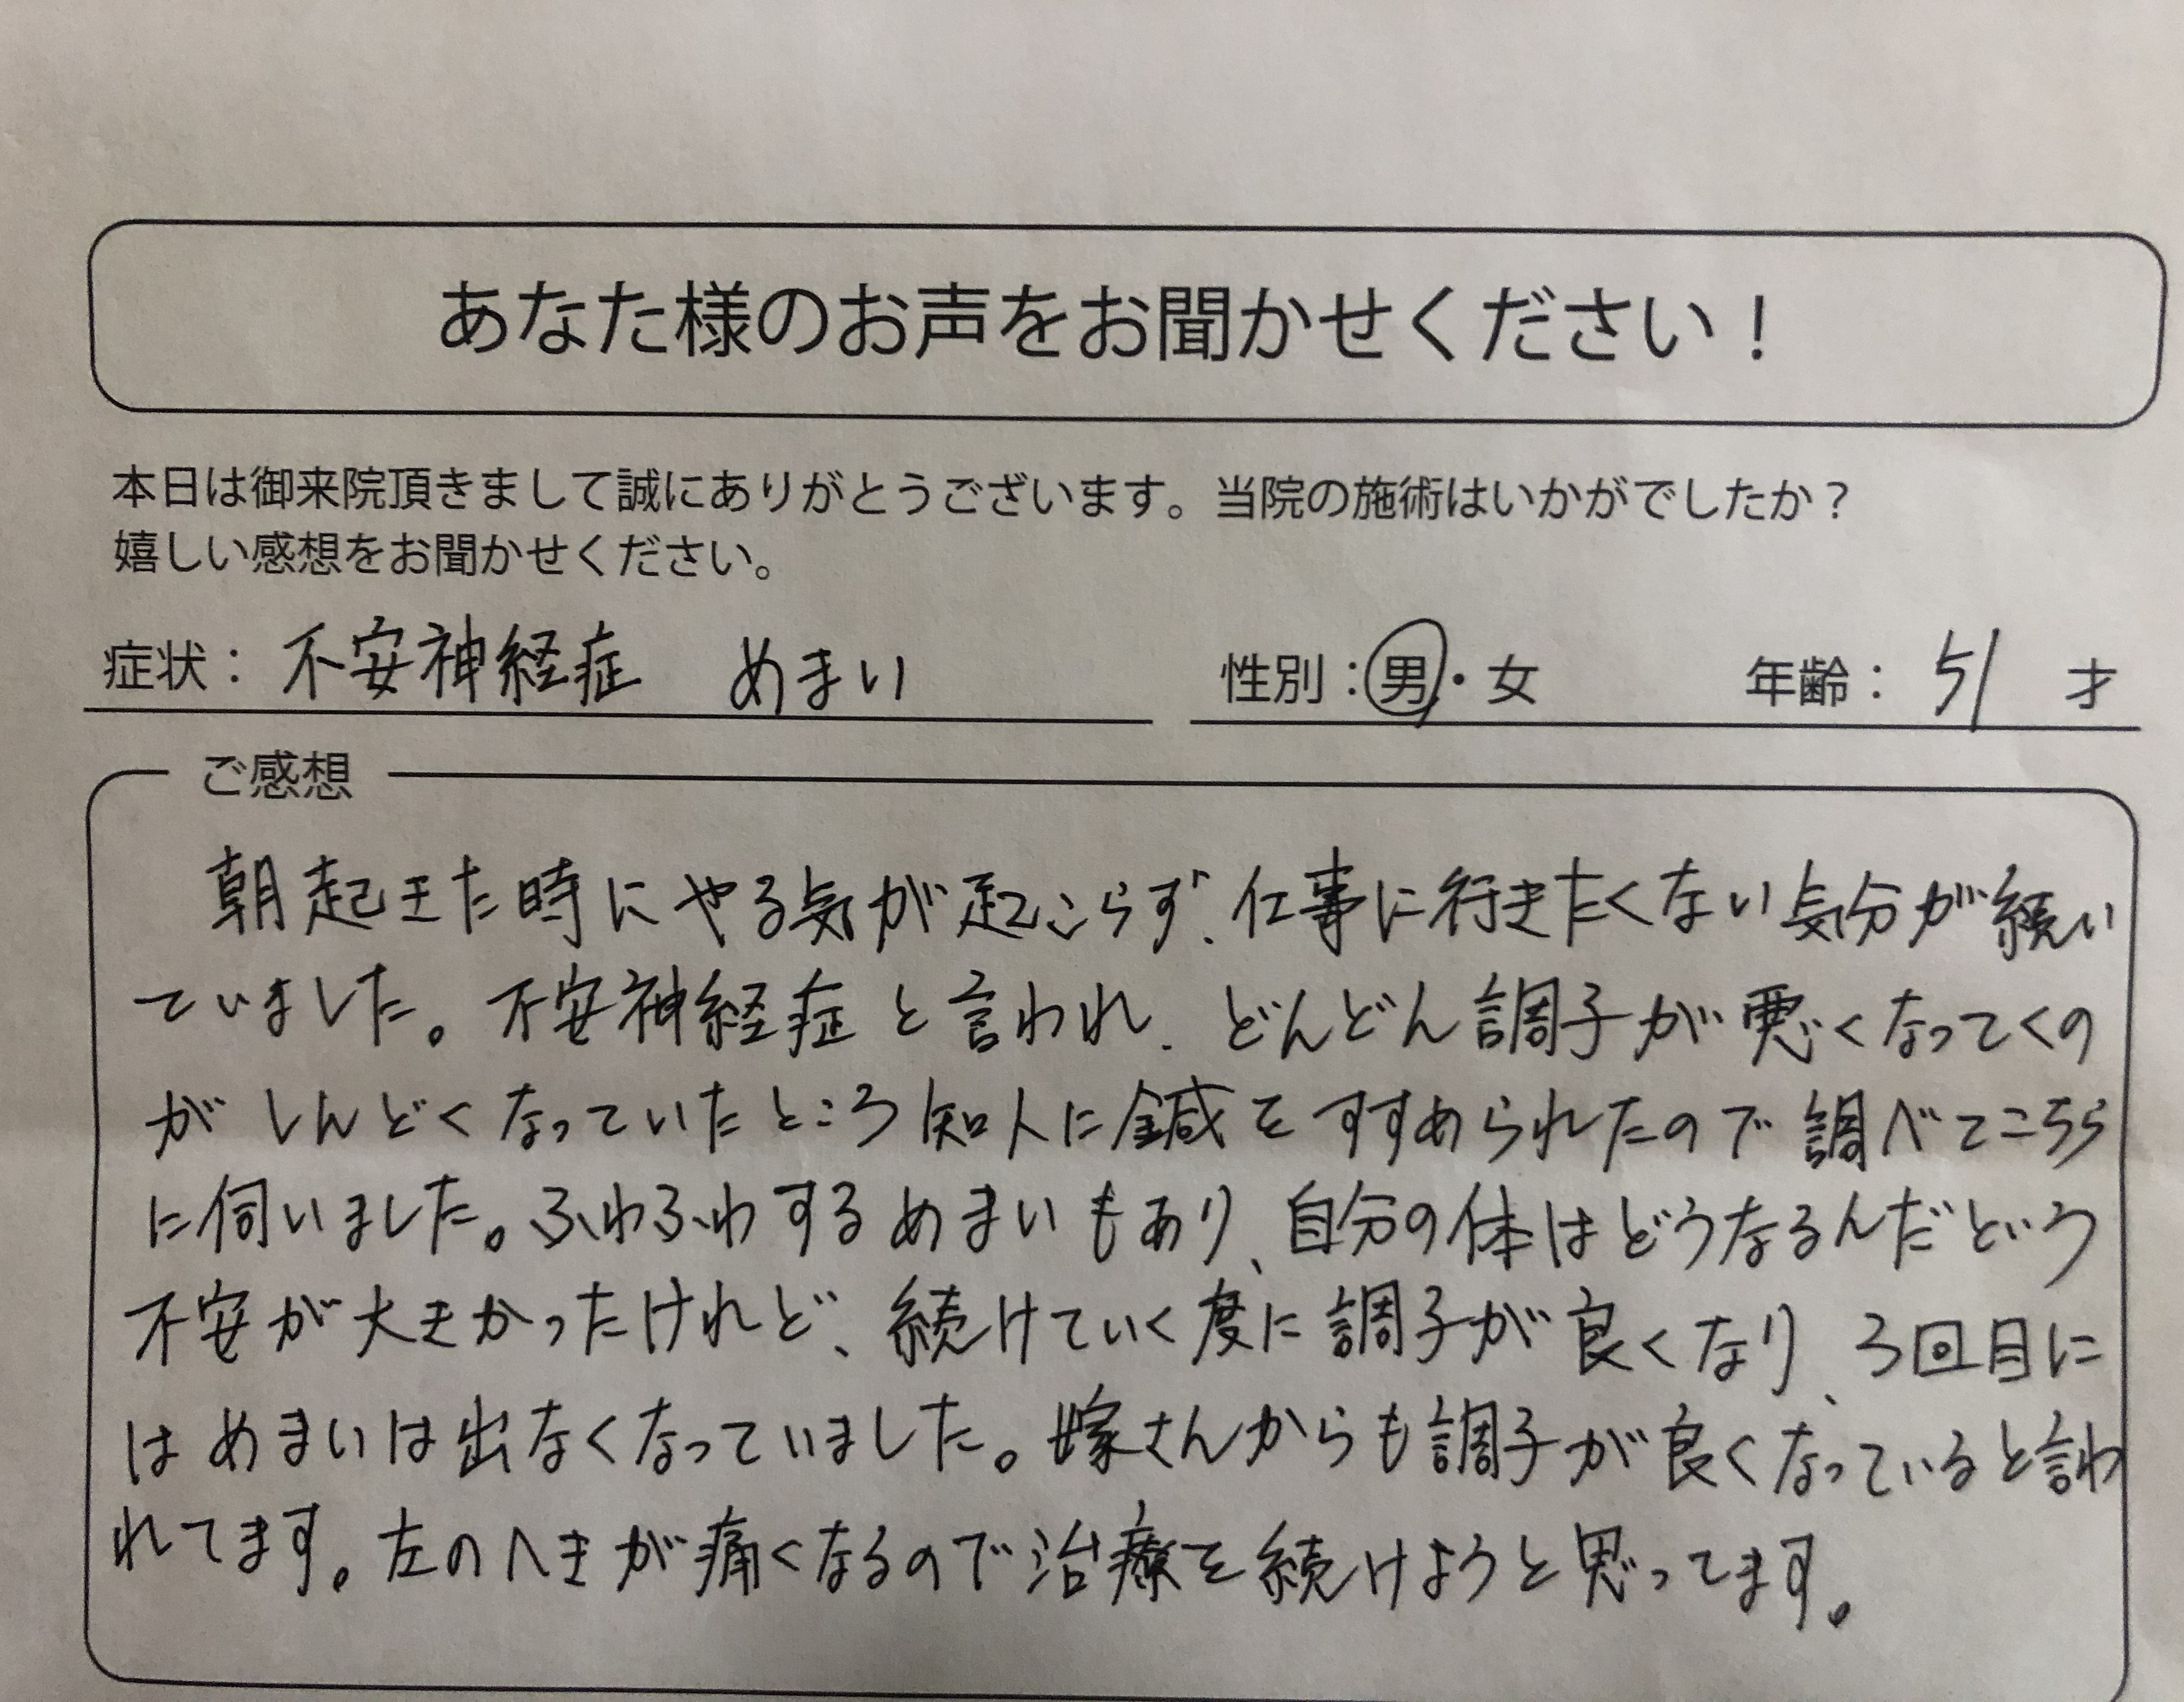 あなた様のお声をお聞かせください！
本日は御来院頂きまして誠にありがとうございます。当院の施術はいかがでしたか？
嬉しい感想をお聞かせください。
症状： 不安神経症 めまい 性別：男・女 年齢： 51 才
ご感想
朝起きた時にやる気が起こらず、仕事に行きたくない気分が続い
ていました。不安神経症と言われ、どんどん調子が悪くなってくの
がしんどくなっていたところ知人に鍼をすすめられたので調べてこちら
に伺いました。ふわふわするめまいもあり、自分の体はどうなるんだという
不安が大きかったけれど、続けていく度に調子が良くなり、3回目に
はめまいは出なくなっていました。嫁さんからも調子が良くなっていると言わ
れてます。左のヘキが痛くなるので治療を続けようと思ってます。